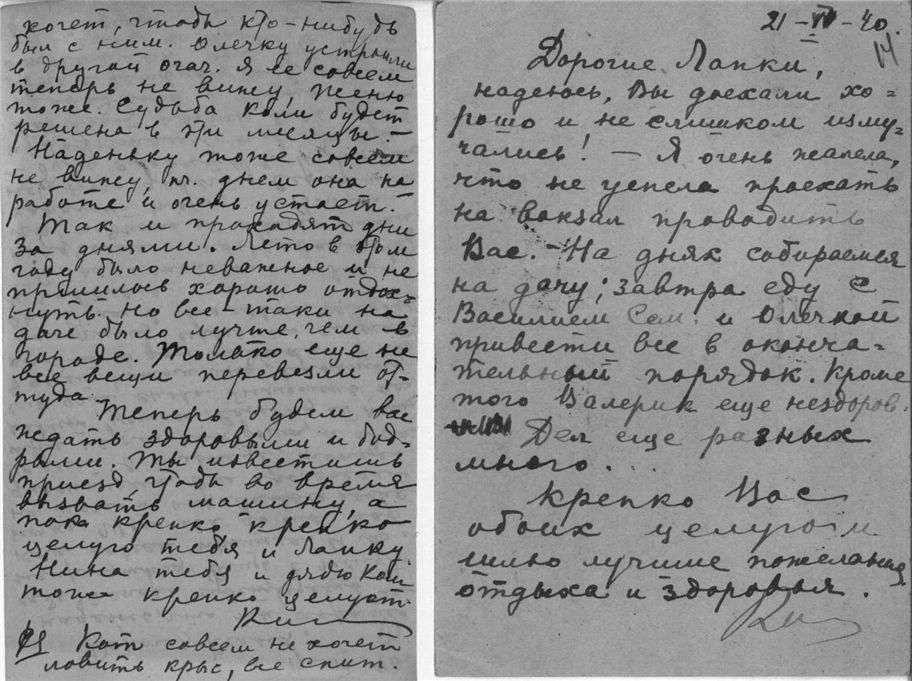 хочет, чтобы кто-нибудь
был с ним. Олечку устроили
в другой очаг. Я ее совсем
теперь не вижу, Женю
тоже. Судьба Коли будет
решена в эти месяцы. —
Наденьку тоже совсем
не вижу, п.ч. днем она на
работе и очень устает. —
Так и проходят дни
за днями. Лето в этом
году было неважное и не
пришлось хорошо отдох=
нуть. Но все-таки на
даче было лучше, чем в
городе. Только еще не
все вещи перевезли от-
туда.
Теперь будем вас
ждать здоровыми и бод-
рыми. Ты известишь
приезд, чтобы во время
вызвать машину, а
пока крепко крепко
целую тебя и Лапку
Нина тебя и дядю
тоже крепко целует.
PS Кот совсем не хочет
ловить крыс, все спит.
21-VI-40.
14
Дорогие Лапки,
надеюсь, Вы доехали хо=
рошо и не слишком изму=
чались! — Я очень жалела,
что не успела проехать
на вокзал проводить
Вас. — На днях собираемся
на дачу; завтра еду с
Василием Сем. и Олечкой
привести все в оконча=
тельный порядок. Кроме
того Валерик еще нездоров.
Дел еще разных
много...
Крепко Вас
обоих целую и
шлю лучшие пожелания
отдыха и здоровья.